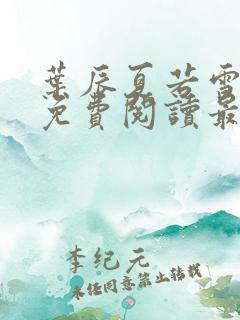 葉辰夏若雪
免費閱讀最
李纪元
未经同意禁止转载